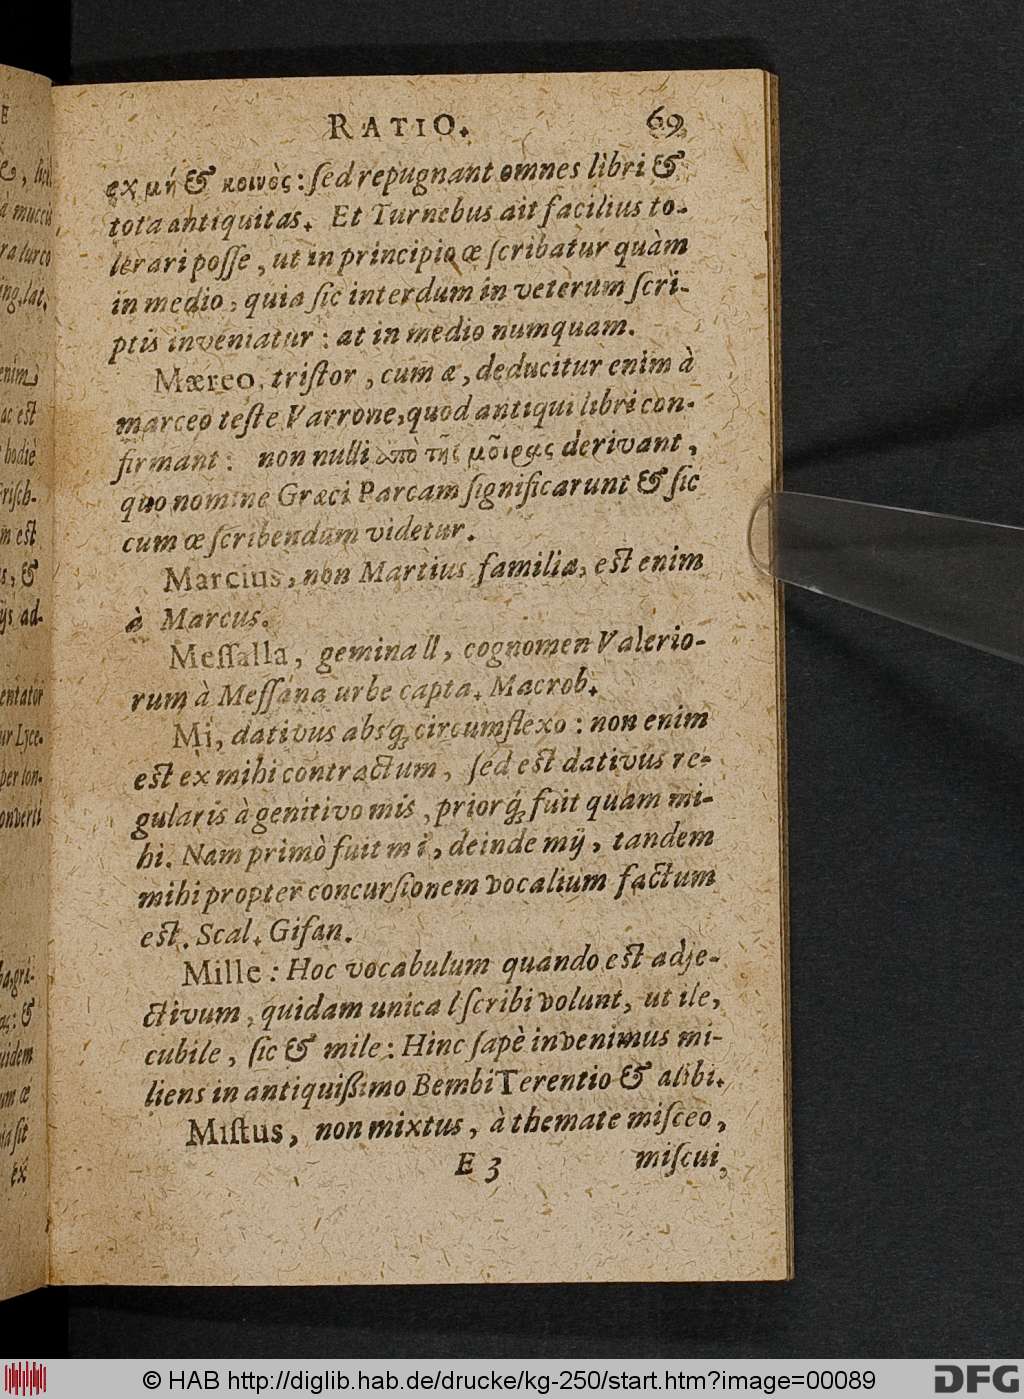 RATIO. 69
ex μή & κοινὸς: ſed repugnant omnes libri &
tota antiquitas. Et Turnebus ait facilius to-
lerari poſſe, ut in principio œ ſcribatur quàm
in medio, quia ſic interdum in veterum ſcri-
ptis inveniatur: at in medio numquam.
Mæreo, triſtor, cum æ, deducitur enim à
marceo teſte Varrone, quod antiqui libri con-
firmant: non nulli ἀπὸ τῆς μοίρας derivant,
quo nomine Græci Parcam ſignificarunt & ſic
cum œ ſcribendum videtur.
Marcius, non Martius familia, est enim
à Marcus.
Meſſalla, gemina ll, cognomen Valerio-
rum à Meſſana urbe capta. Macrob.
Mi, dativus absq; circumflexo: non enim
est ex mihi contractum, ſed est dativus re-
gularis à genitivo mis, priorq́; fuit quàm mi-
hi. Nam primò fuit mi, deinde mij, tandem
mihi propter concurſionem vocalium factum
est. Scal. Gifan.
Mille: Hoc vocabulum quando est adje-
ctivum, quidam unica l ſcribi volunt, ut ile,
cubile, ſic & mile: Hinc ſæpè invenimus mi-
liens in antiquißimo Bembi Terentio & alibi.
Miſtus, non mixtus, à themate miſceo,
E 3 miſcui,
ex
© HAB http://diglib.hab.de/drucke/kg-250/start.htm?image=00089
DFG